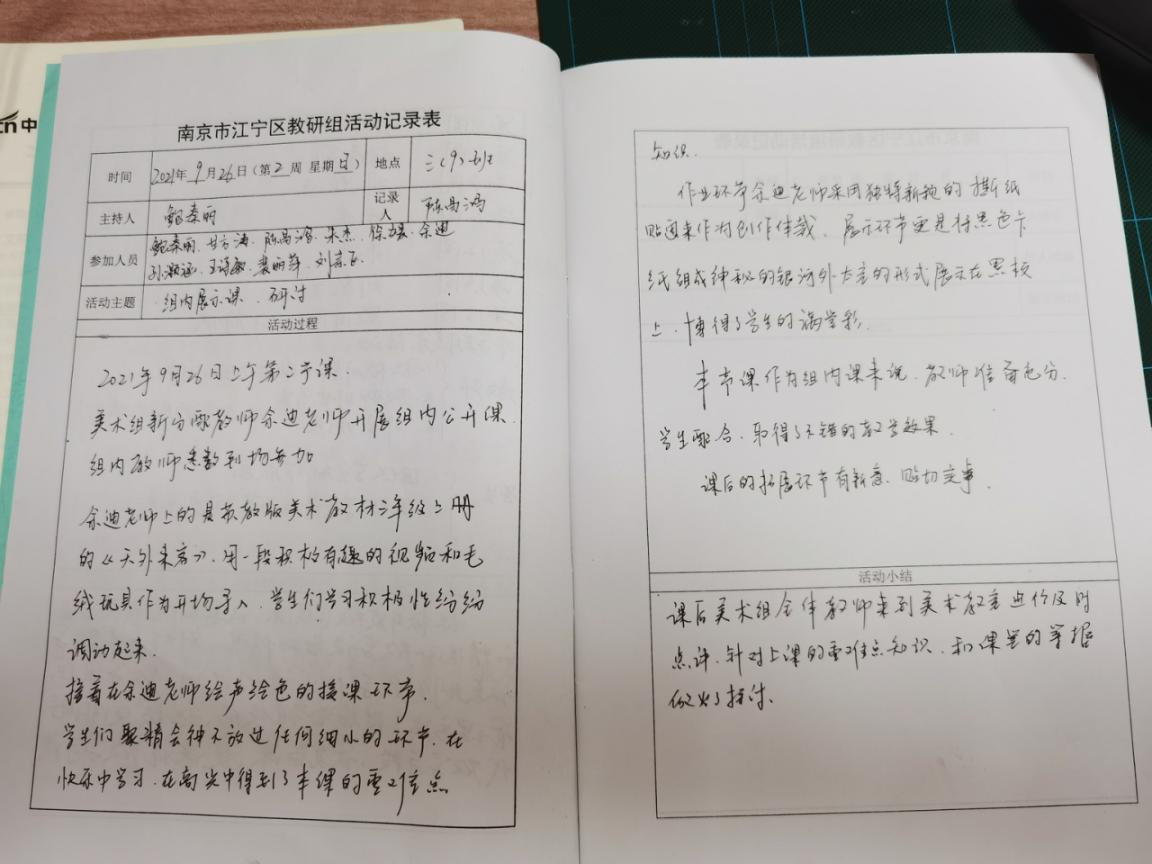 中
南京市江宁区教研组活动记录表
时间 2021年9月26日(第2周 星期日) 地点 三(9)班
主持人 鲍秦丽 记录人 陈昌鸿
参加人员 鲍秦丽、甘方涛、陈昌鸿、朱杰、徐 余迪
孙淑涵、王诗敏、裴丽萍、刘
活动主题 组内展示课、研讨
活动过程
2021年9月26日上午第二节课.
美术组新分配教师余迪老师开展组内公开课.
组内教师悉数到场参加
余迪老师上的是苏教版美术教材三年级上册
的《天外来客》.用一段积极有趣的视频和毛
绒玩具作为开场导入.学生们学习积极性纷纷
调动起来.
接着在余迪老师绘声绘色的授课环节.
学生们聚精会神不放过任何细小的环节.在
快乐中学习.在 中得到了本课的重难点
知识.
作业环节余迪老师采用独特新颖的撕纸
贴画来作为创作体裁.展示环节更是将黑色卡
纸组成神秘的银河外太空的形式展示在黑板
上.博得了学生的满堂彩.
本节课作为组内课来说.教师准备充分.
学生配合.取得了不错的教学效果.
课后的拓展环节有新意.贴切
活动小结
课后美术组全体教师来到美术教室进行及时
点评.针对上课的重难点知识.和课堂的掌握
做出了探讨.